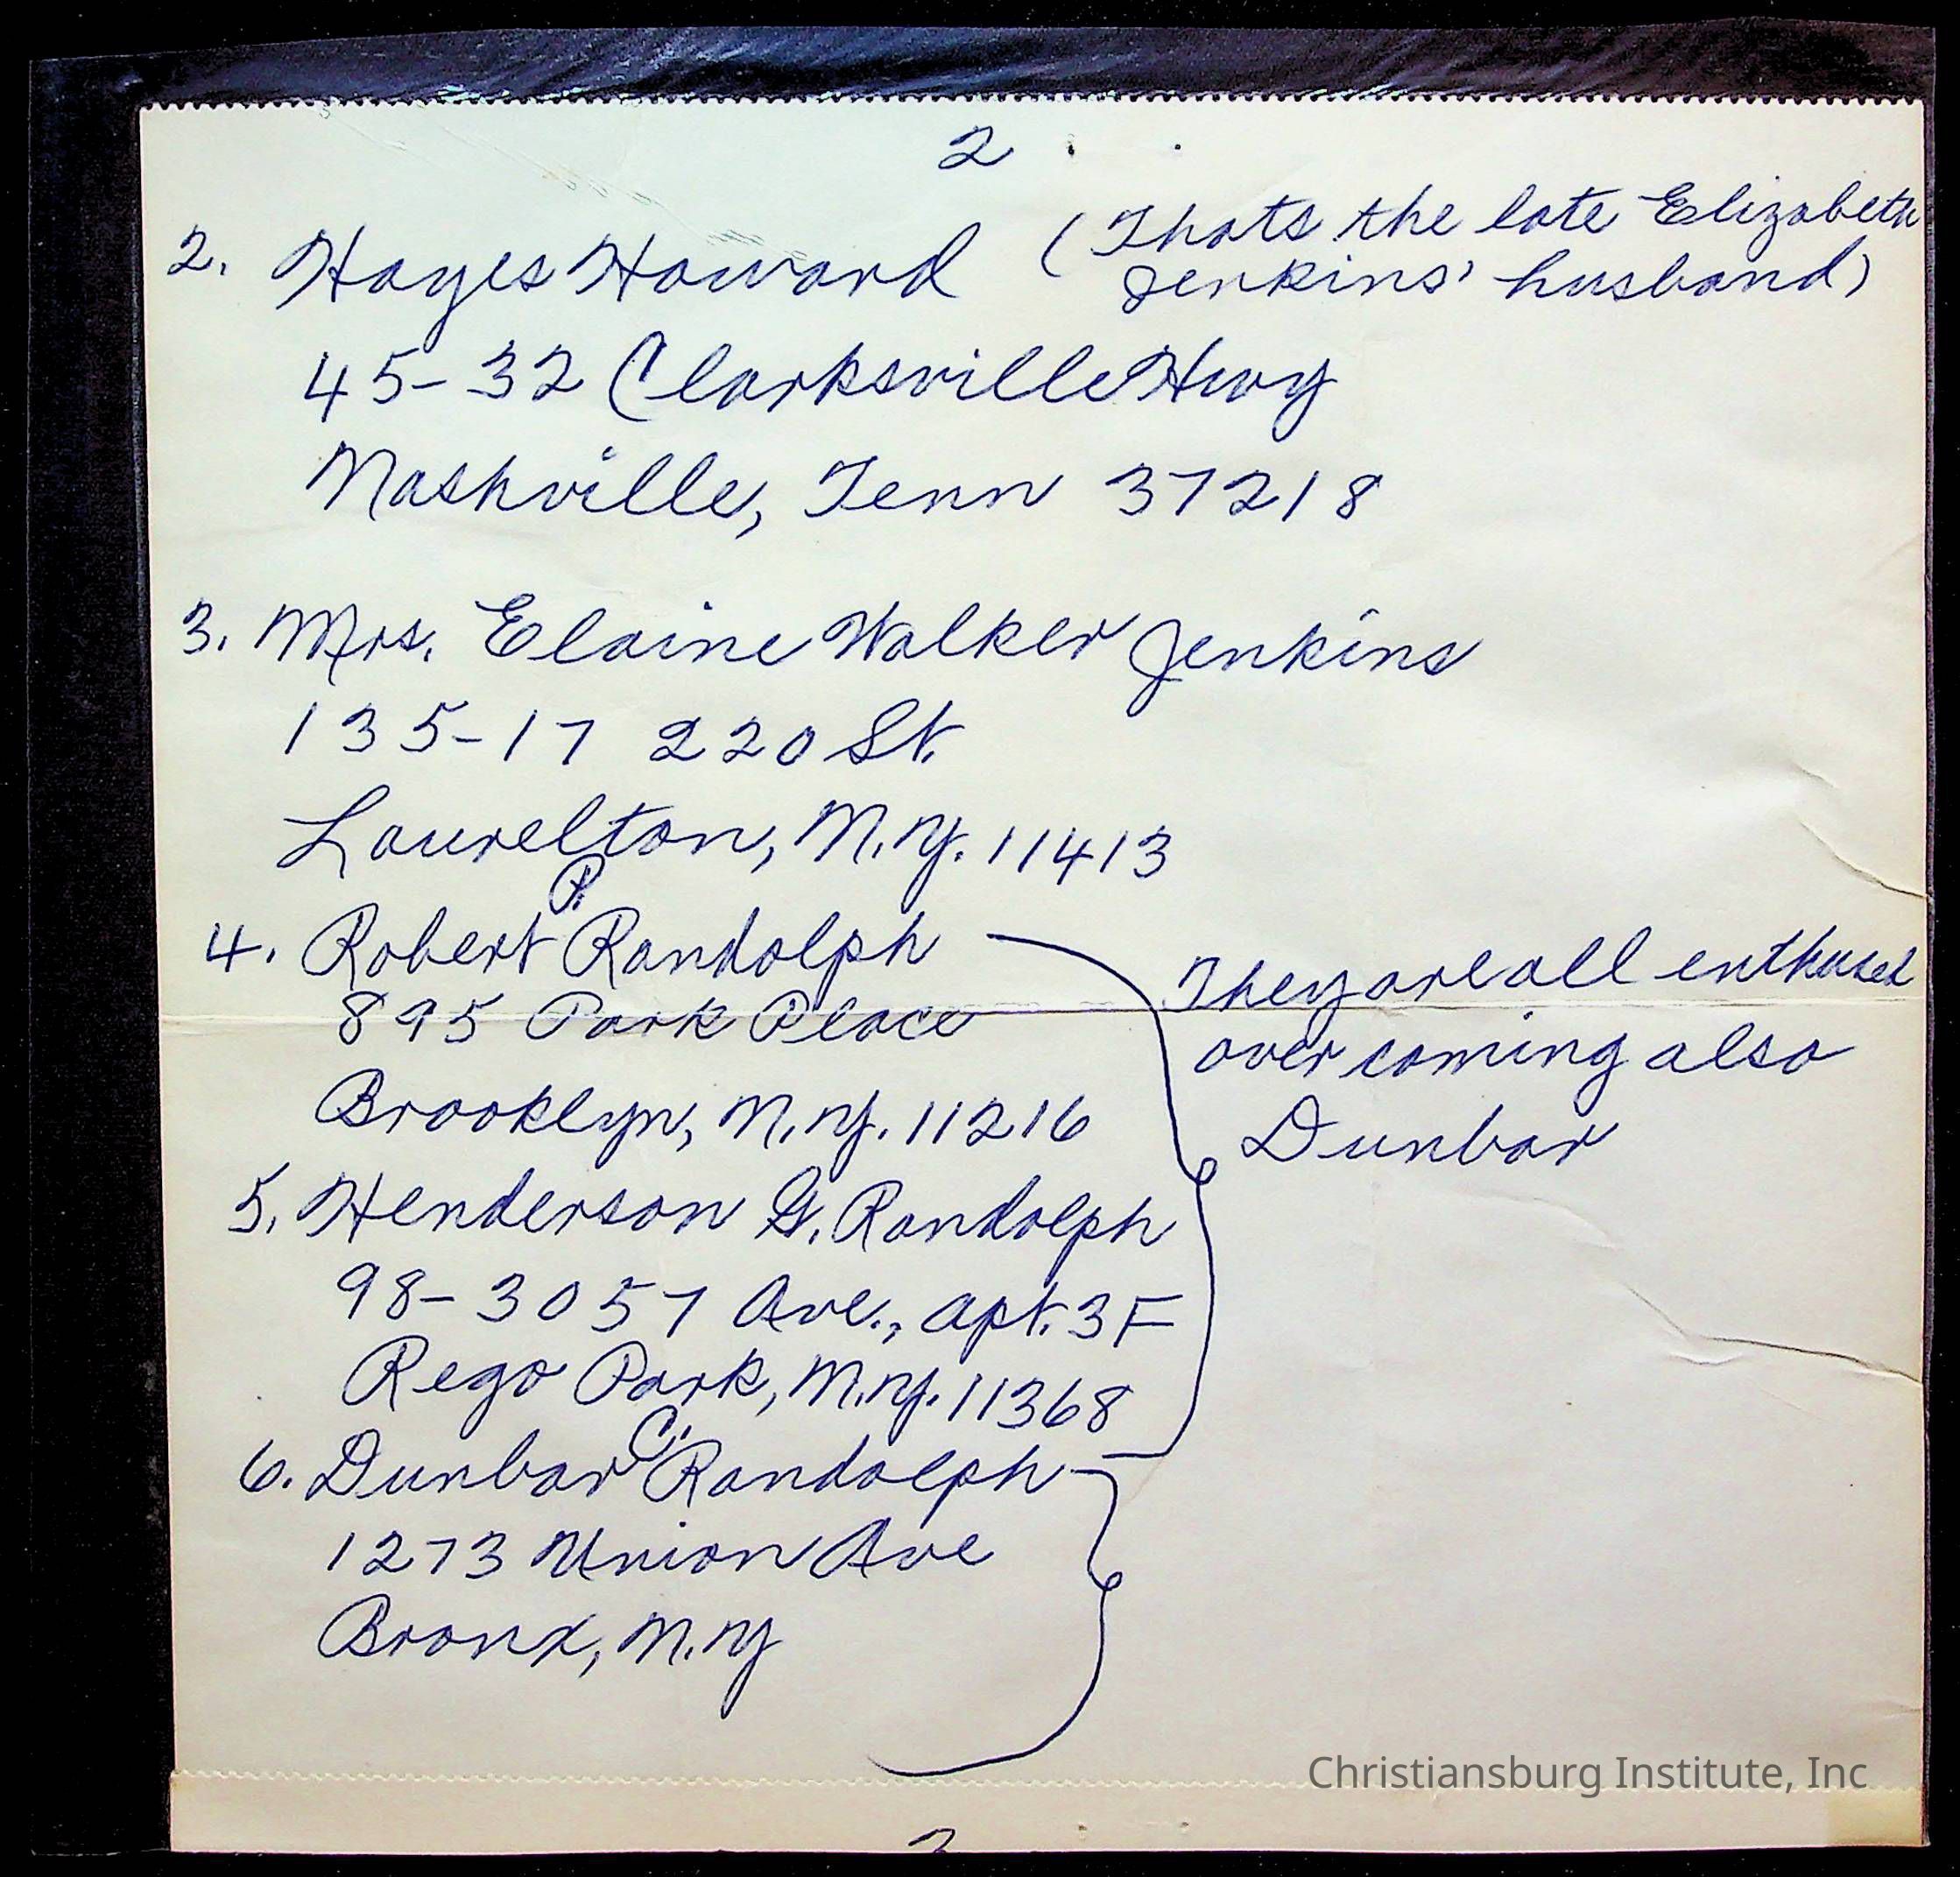 2
2. Hayes Howard (Thats the late Elizabeth
Jenkins' husband)
45-32 Clarksville Hwy
Nashville, Tenn 37218
3. Mrs. Elaine Walker Jenkins
135-17 220 St.
Laurelton, N.Y. 11413
4. Robert P. Randolph
895 Park Place
Brooklyn, N.Y. 11216
They are all enthused
over coming also
Dunbar
5. Henderson G. Randolph
98-30 57 Ave., apt. 3F
Rego Park, N.Y. 11368
6. Dunbar C. Randolph
1273 Union Ave
Bronx, N.Y
Christiansburg Institute, Inc